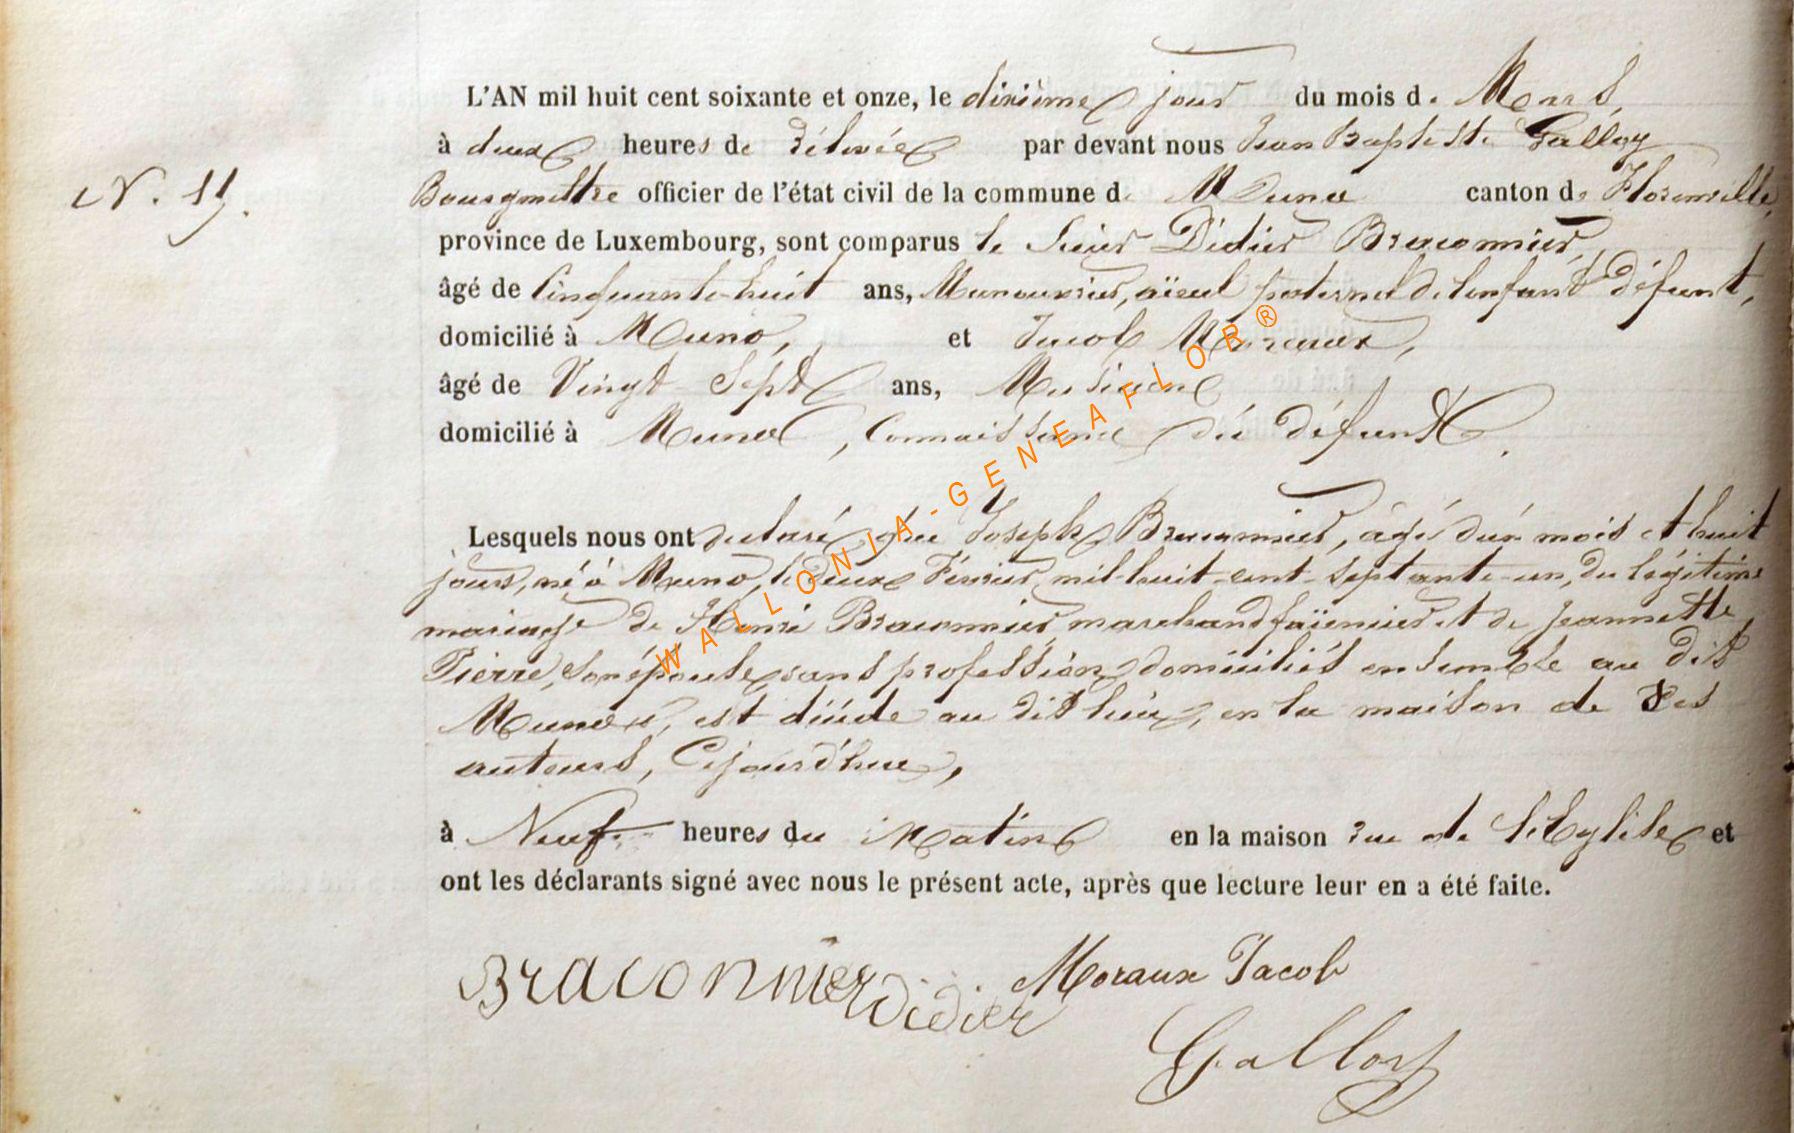 L'AN mil huit cent soixante et onze, le dixième jour du mois de Mars,
à deux heures de rélevée par devant nous Jean Baptiste Galloy
N. 11. Bourgmestre officier de l'état civil de la commune de Muno canton de Florenville,
province de Luxembourg, sont comparus le Sieur Didier Braconnier,
âgé de Cinquante-huit ans, Manouvrier, aïeul paternel de l'enfant défunt,
domicilié à Muno, et Jacob Moraux,
âgé de Vingt Sept ans, Musicien
domicilié à Muno, Connaissance du défunt.
Lesquels nous ont declaré que Joseph Braconnier, âgé d'un mois et huit
jours, né à Muno, le deux Février mil-huit-cent-septante-un, du légitime
mariage de Henri Braconnier marchand faïencier et de Jeannette
Pierre, son épouse, sans profession, domiciliés ensemble au dit
Muno, est décédé au dit lieu, en la maison de ses
auteurs, Cejourd'hui,
à Neuf heures du Matin en la maison rue de l'Eglise et
ont les déclarants signé avec nous le présent acte, après que lecture leur en a été faite.
Braconnier Didier Moraux Jacob
Galloy
WALLONIA-GENEAFLOR®